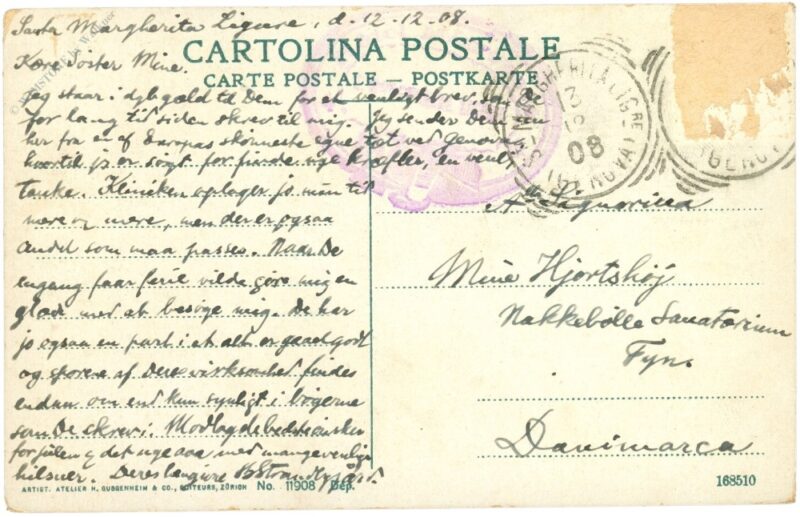 Santa Margherita Ligure, d. 12-12-08.
CARTOLINA POSTALE
CARTE POSTALE — POSTKARTE
Kære Søster Mine.
Jeg staar i dyb gæld til Dem for et venligt brev, som De
for lang tid siden skrev til mig. Jeg sender Dem nu
her fra en af Europas skønneste egne tæt ved Genova,
hvortil jeg er søgt for finde nye kræfter, en venl.
tanke. Kliniken optager jo min tid
mere og mere, men der er ogsaa
andet som maa passes. Naar De
engang faar ferie vilde gøre mig en
glæde med at besøge mig. De har
jo ogsaa en part i at alt er gaaet godt
og sporene af Deres virksomhed findes
endnu om end kun synligt i bøgerne
som De skrev i. Modtag de bedste ønsker
for julen og det nye aar med mange venlige
hilsner. Deres hengivne
S. MARGHERITA LIGRE
(GENOVA)
13
12
08
A Signorina
Mine Hjortshöj
Nakkebölle Sanatorium
Fyn.
Danimarca
ARTIST. ATELIER H. GUGGENHEIM & CO., EDITEURS, ZÜRICH No. 11908 Dép.
168510